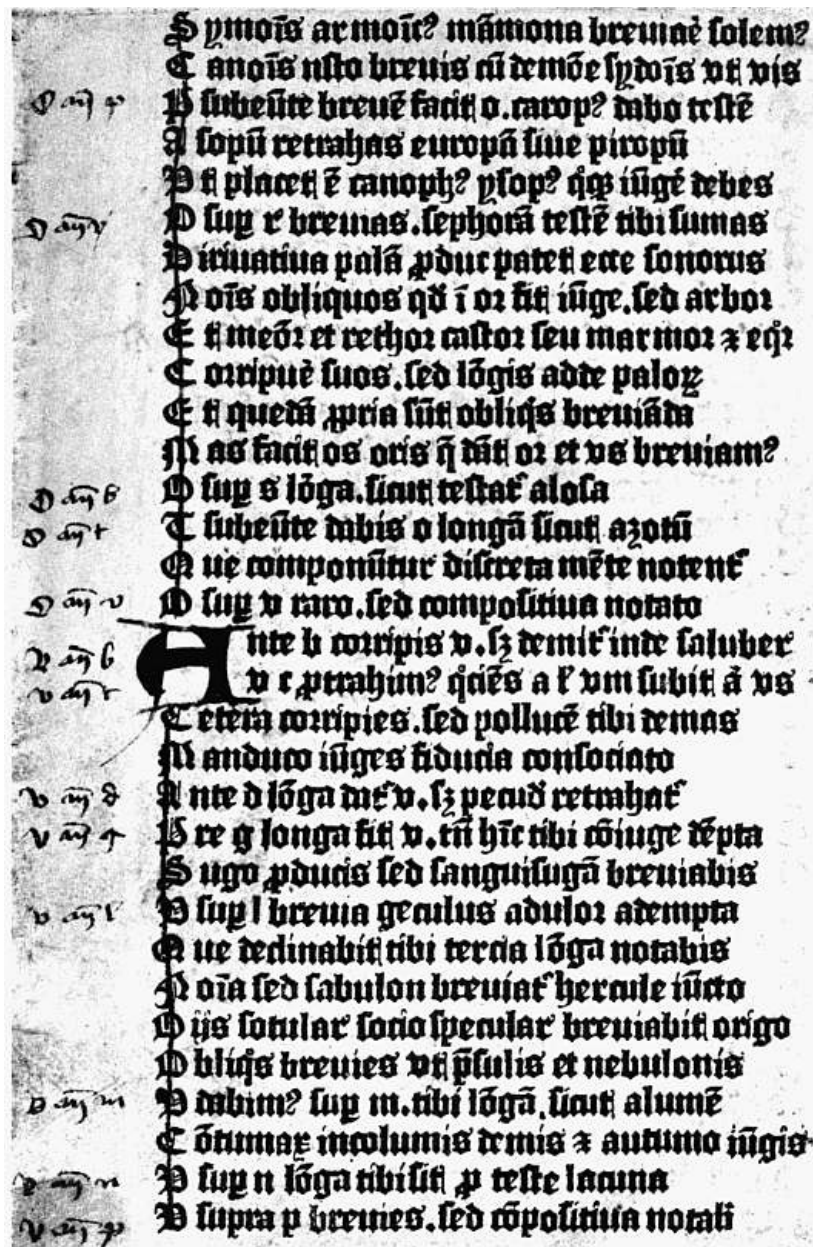 S ymoīs armoīcꝰ māmona breuiaē solemꝰ
C anoīs nsto breuis cū demōe sydoīs vt vis
O añ p P subeūte breuē facit o. caropꝰ dabo testē
A sopū retrahas europā siue piropū
V t placet ē canophꝰ ysopꝰ qͥqꝫ iūgē debes
O añ r O suꝑ r breuias. sephorā testē tibi sumas
D iriuatiua palā ꝓduc patet ecce sonorus
N oīs obliquos qđ ī or fit iūge. sed arbor
E t meōr et rethor castor seu marmor ⁊ eqͥr
C orripuē suos. sed lōgis adde palorꝝ
E t quedā ꝓpria sūt obliqͥs breuiāda
M as facit os oris q̄ dāt or et vs breuiamꝰ
O añ s O suꝑ s lōga. sicut testat᷑ alosa
O añ t T subeūte dabis o longā sicut azotū
Q ue componūtur discreta mēte notent᷑
O añ v O suꝑ v raro. sed compositiua notato
v añ b Ante b corripis v. sꝫ demit᷑ inde saluber
v añ c v c ꝓtrahimꝰ qͦciēs a ł vm subit aͭ vs
C etera corripies. sed pollucē tibi demas
M anduco iūges fiducia consociato
v añ d A nte d lōga dat᷑ v. sꝫ pecuđ retrahat᷑
v añ g P re g longa fit v. tn̄ hīc tibi cōiuge dēpta
S ugo ꝓducis sed sanguisugā breuiabis
v añ l V suꝑ l breuia geculus adulor adempta
Q ue declinabit tibi tercia lōga notabis
N oīa sed sabulon breuiat᷑ hercule iūcto
D ijs sotular socio specular breuiabit origo
O bliqͥs breuies vt p̄sulis et nebulonis
v añ m V dabimꝰ suꝑ m. tibi lōgā. sicut alumē
C ōtumax incolumis demis ⁊ autumo iūgis
v añ n V suꝑ n lōga tibi sit ꝓ teste lacuna
v añ p V supra p breuies. sed cōpositiua notab